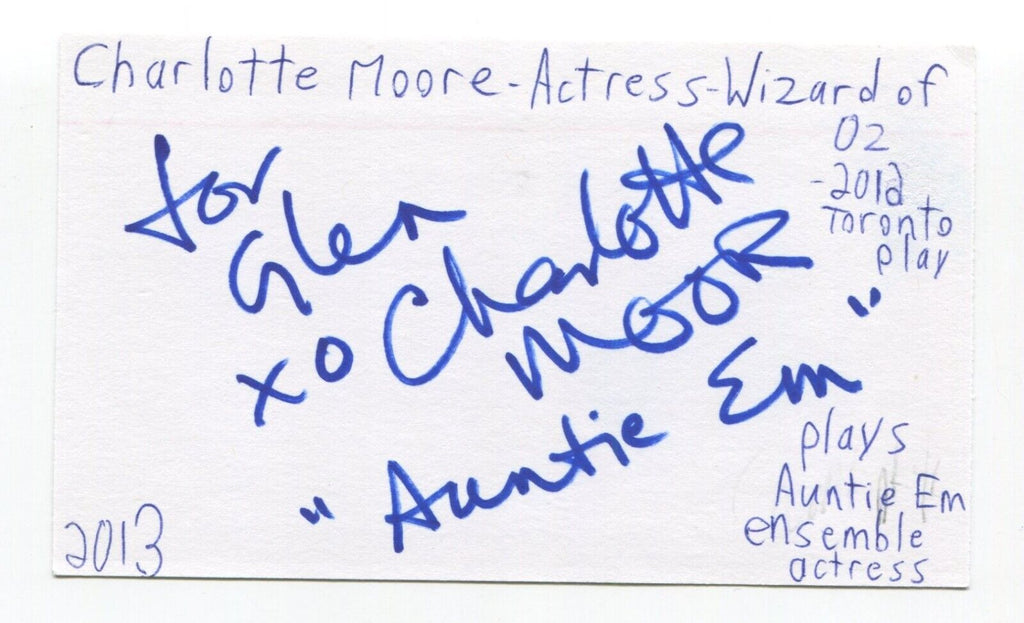 Charlotte Moore-Actress-Wizard of
Oz
-2012
Toronto
play
for
Glen
xo Charlotte
Moore
"Auntie Em"
plays
Auntie Em
ensemble
actress
2013